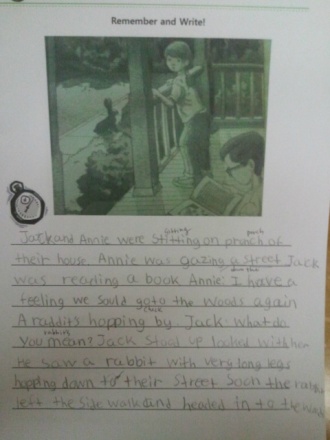 Remember and Write!
sitting porch
Jack and Annie were stitting on pranch of
their house. Annie was gazing a street Jack
down the
was reading a book Annie: I have a
feeling we sould go to the woods again
check
A raddits hopping by Jack: what do
rabbits
you mean? Jack stood up looked with her
He saw a rabbit with very long legs
hopping down to their street Soon the rabbit
left the side walk and headed in to the